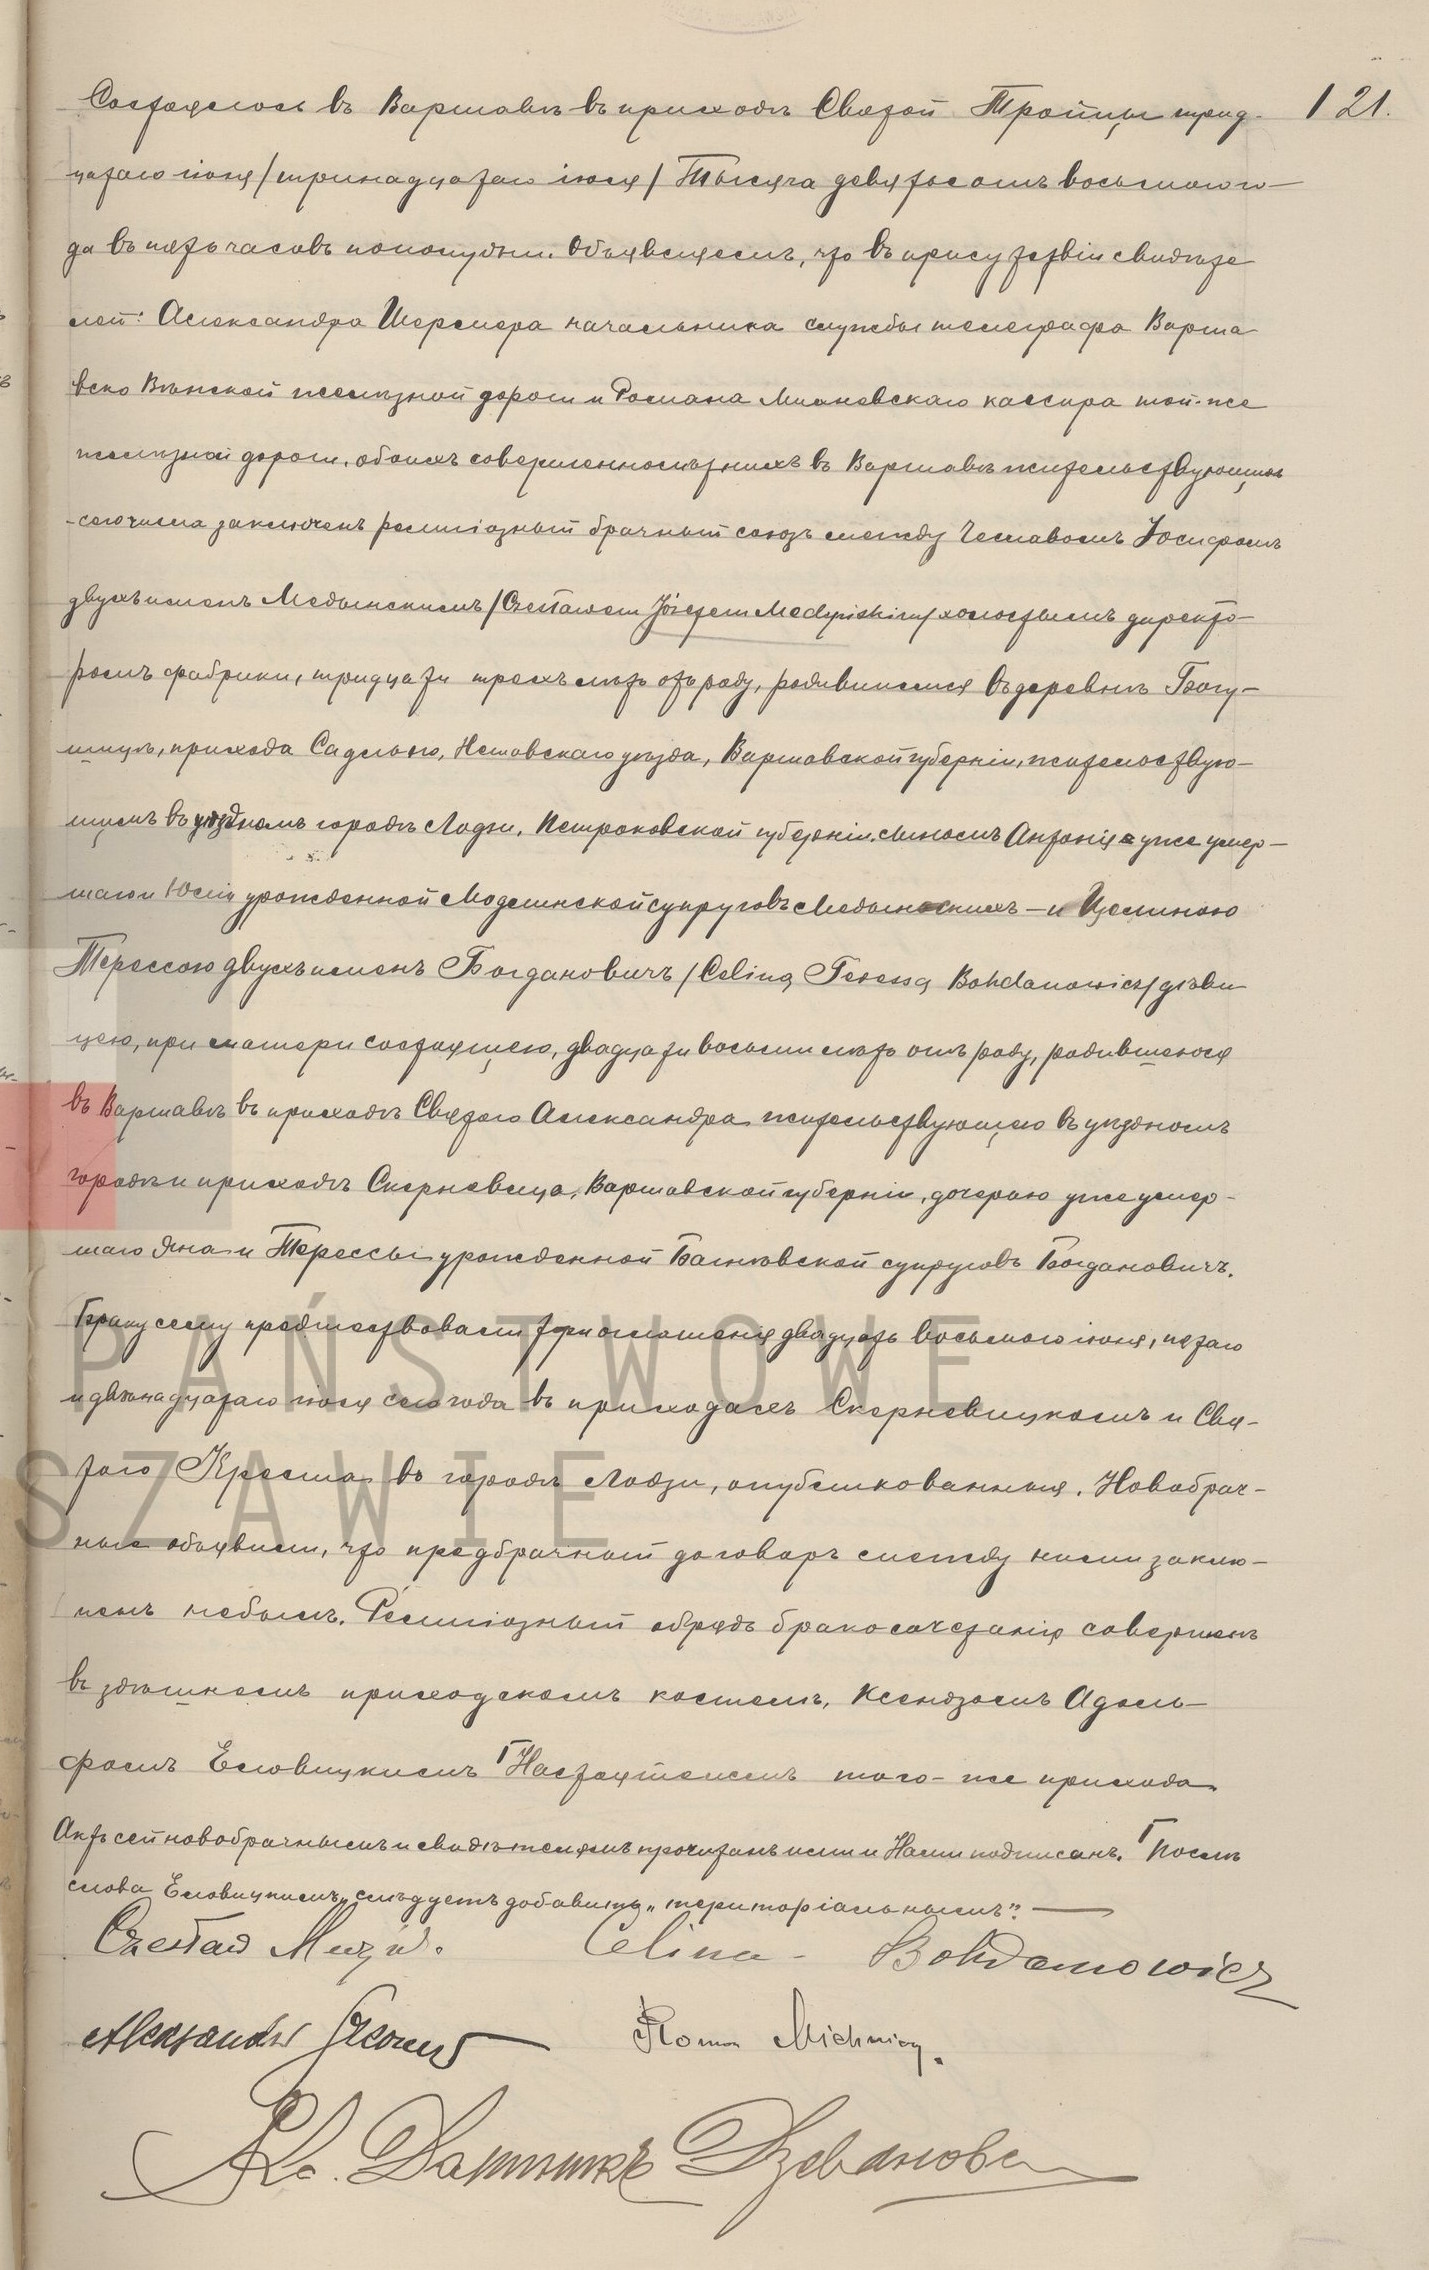 Состоялось въ Варшавѣ въ приходѣ Святой Тройцы трид- 121.
цатаго іюня /тринадцатаго іюля/ Тысяча девятьсотъ восьмого го-
да въ пять часовъ пополудни. Объявляемъ, что въ присутствіи свидѣте
лей: Александра Шермера начальника службы телеграфа Варша
вско Вѣнской желѣзной дороги и Романа кассира той-же
желѣзной дороги, обоихъ совершеннолѣтнихъ въ Варшавѣ жительствующихъ
- сего числа заключенъ религіозный брачный союзъ между Чеславомъ Іосифомъ
двухъ именъ Медынскимъ /Czesławem Józefem Medyńskim/ холостымъ директо-
ромъ фабрики, тридцати трехъ лѣтъ отъ роду, родившимся въ деревнѣ Богу-
прихода Нешавскаго уѣзда, Варшавской губерніи, жительствую-
щимъ въ уѣздномъ городѣ Лодзи, Петроковской губерніи, сыномъ Антонія уже умер-
шаго и Юліи урожденной Моделинской супруговъ Медынскихъ - и Целиною
Терессою двухъ именъ Богдановичъ /Celiną Teresą Bohdanowicz/ дѣви
цею, при матери состоящею, двадцати восьми лѣтъ отъ роду, родившеюся
въ Варшавѣ въ приходѣ Святого Александра жительствующею въ уѣздномъ
городѣ и приходѣ Скерневица, Варшавской губерніи, дочерью уже умер-
шаго Яна и Терессы урожденной супруговъ Богдановичъ.
Браку сему предшествовали три оглашенія двадцать восьмого іюня, пятаго
и двѣнадцатаго іюля сего года въ приходахъ Скерневицкомъ и Свя-
того Креста въ городѣ Лодзи, опубликованныя. Новобрач-
ные объявили, что предбрачный договоръ между ними заклю-
ченъ небылъ. Религіозный обрядъ бракосочетанія совершенъ
въ здѣшнемъ приходскомъ костелѣ, Ксендзомъ Адоль-
фомъ Еловицкимъ Г Настоятелемъ того-же прихода
Актъ сей новобрачнымъ и свидѣтелямъ прочитанъ ими и Нами подписанъ. Г Послѣ
слова Еловицкимъ, слѣдуетъ добавить „территоріальнымъ". —
Czesław Celina - Bohdanowicz
Aleksander Roman
PAŃSTWOWE
SZAWIE